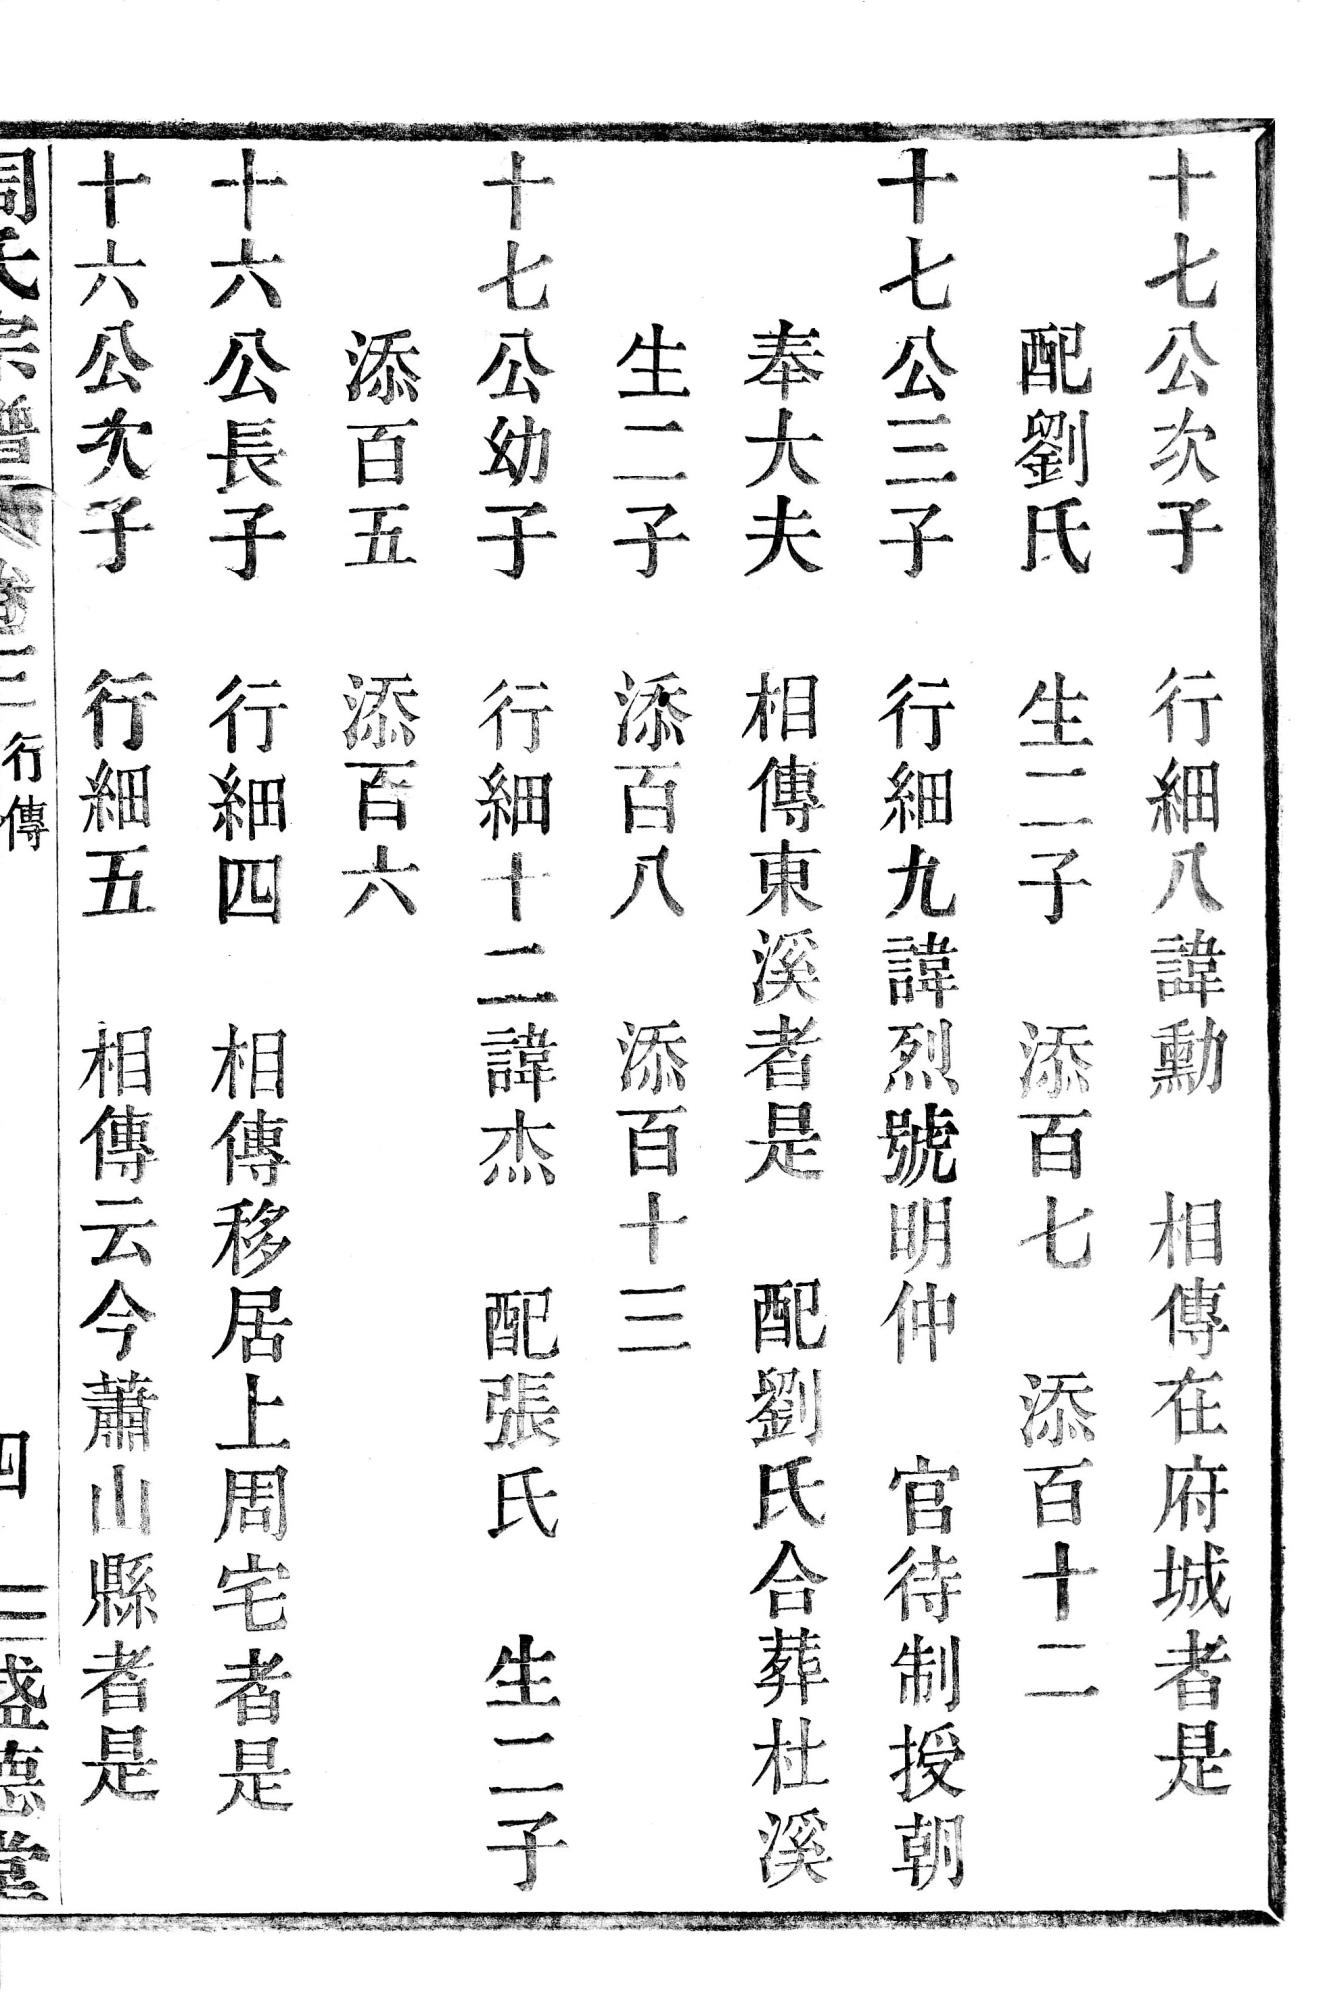 十七公次子　行細八諱勳　相傳在府城者是
配劉氏　生二子　添百七　添百十二
十七公三子　行細九諱烈號明仲　官待制授朝
奉大夫　相傳東溪者是　配劉氏合葬杜溪
生二子　添百八　添百十三
十七公幼子　行細十二諱杰　配張氏　生二子
添百五　添百六
十六公長子　行細四　相傳移居上周宅者是
十六公次子　行細五　相傳云今蕭山縣者是
周氏宗譜　卷三　行傳　四　三盛德堂